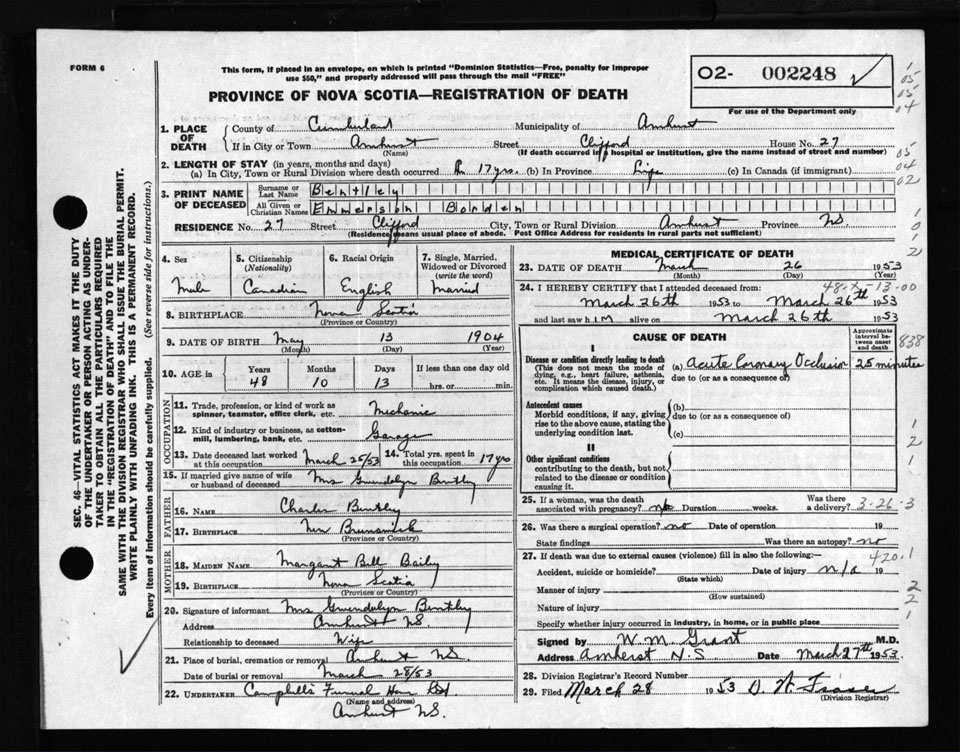 FORM 6
This form, if placed in an envelope, on which is printed "Dominion Statistics—Free, penalty for improper
use $50," and properly addressed will pass through the mail "FREE"
PROVINCE OF NOVA SCOTIA—REGISTRATION OF DEATH
02- 002248 ✓
For use of the Department only
1 05 05 04
1. PLACE OF DEATH
County of Cumberland Municipality of Amherst
If in City or Town Amherst Street Clifford House No. 27
(Name) (If death occurred in hospital or institution, give the name instead of street and number)
2. LENGTH OF STAY (in years, months and days)
(a) In City, Town or Rural Division where death occurred 17 yrs. (b) In Province Life (c) In Canada (if immigrant)
05 04 02
3. PRINT NAME OF DECEASED
Surname or Last Name Bentley
All Given or Christian Names Emmerson Borden
RESIDENCE No. 27 Street Clifford City, Town or Rural Division Amherst Province NS
(Residence means usual place of abode. Post Office Address for residents in rural parts not sufficient)
1 0 1 2
SEC. 46—VITAL STATISTICS ACT MAKES IT THE DUTY
OF THE UNDERTAKER OR PERSON ACTING AS UNDER-
TAKER TO OBTAIN ALL THE PARTICULARS REQUIRED
IN THE "REGISTRATION OF DEATH" AND TO FILE THE
SAME WITH THE DIVISION REGISTRAR WHO SHALL ISSUE THE BURIAL PERMIT.
WRITE PLAINLY WITH UNFADING INK. THIS IS A PERMANENT RECORD.
Every item of information should be carefully supplied. (See reverse side for instructions.)
4. Sex
Male
5. Citizenship
(Nationality)
Canadian
6. Racial Origin
English
7. Single, Married,
Widowed or Divorced
(write the word)
Married
8. BIRTHPLACE Nova Scotia
(Province or Country)
9. DATE OF BIRTH May 13 1904
(Month) (Day) (Year)
10. AGE in
Years Months Days If less than one day old
48 10 13 hrs. or min.
OCCUPATION
11. Trade, profession, or kind of work as
spinner, teamster, office clerk, etc. Mechanic
12. Kind of industry or business, as cotton-
mill, lumbering, bank, etc. Garage
13. Date deceased last worked
at this occupation March 25/53
14. Total yrs. spent in
this occupation 17 yrs
15. If married give name of wife
or husband of deceased Mrs Gwendolyn Bentley
FATHER
16. NAME Charles Bentley
17. BIRTHPLACE New Brunswick
(Province or Country)
MOTHER
18. MAIDEN NAME Margaret Bell Baily
19. BIRTHPLACE Nova Scotia
(Province or Country)
20. Signature of informant Mrs Gwendolyn Bentley
Address Amherst NS.
Relationship to deceased Wife
21. Place of burial, cremation or removal Amherst NS.
Date of burial or removal March 28/53
22. UNDERTAKER Campbells Funeral Home Ltd
(Name and address)
Amherst NS.
MEDICAL CERTIFICATE OF DEATH
23. DATE OF DEATH March 26 1953
(Month) (Day) (Year)
48-X-13-00
24. I HEREBY CERTIFY that I attended deceased from:
March 26th 1953 to March 26th 1953
and last saw him alive on March 26th 1953
CAUSE OF DEATH
Approximate
interval be-
tween onset
and death
838
I
Disease or condition directly leading to death
(This does not mean the mode of
dying, e.g., heart failure, asthenia,
etc. It means the disease, injury, or
complication which caused death.)
(a) Acute Coronary Occlusion 25 minutes
due to (or as a consequence of)
Antecedent causes
Morbid conditions, if any, giving
rise to the above cause, stating the
underlying condition last.
(b)
due to (or as a consequence of)
(c)
1 2
II
Other significant conditions
contributing to the death, but not
related to the disease or condition
causing it.
1 1
25. If a woman, was the death
associated with pregnancy? no Duration weeks. Was there
a delivery?
3-26-3
26. Was there a surgical operation? no Date of operation 19
State findings Was there an autopsy? no
27. If death was due to external causes (violence) fill in also the following:
420.1
Accident, suicide or homicide? Date of injury n/a 19
(State which)
Manner of injury
(How sustained)
Nature of injury
2 2 1
Specify whether injury occurred in industry, in home, or in public place
Signed by W.M. Grant M.D.
Address Amherst N.S Date March 27th 1953.
28. Division Registrar's Record Number
29. Filed March 28 1953
(Division Registrar)